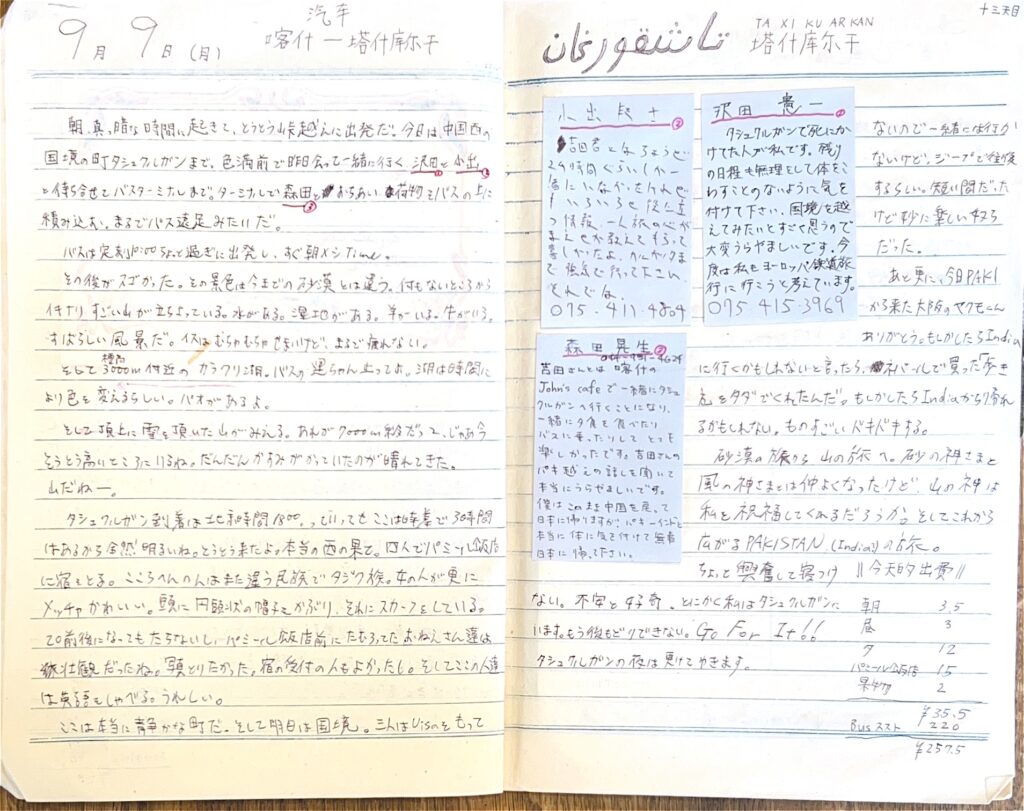 9月 9日 (月)
汽车
喀什 — 塔什库尔干
朝、真っ暗な時間に起きて、とうとう峠越えに出発だ。今日は、中国西の
国境の町タシュクルガンまで。色満前で昨日会って一緒に行く 沢田と小出
と待ち合せてバスターミナルまで。ターミナルで森田とおちあい荷物をバスの上に
積み込む。まるでバス遠足みたいだ。
バスは定刻 ちょっと過ぎに出発し、すぐ朝メシTime。
その後がスゴかった。その景色は今までの砂漠とは違う。何もないところから
いきなりすごい山が立ちよっている。水がある。湿地がある。羊がいる。牛がいる。
すばらしい風景だ。イスはむちゃむちゃせまいけど、まるで疲れない。
そして標高3000m付近のカラクリ湖。バスの運ちゃん止ってよ。湖は時間に
より色を変えるらしい。パオがあるよ。
そして頂上に雪を頂いた山がみえる。あれが7000m級だって、じゃあ今
そうとう高いところにいるね。だんだんかすみがかっていたのが晴れてきた。
山だねー。
タシュクルガン到着は 時間1800。っていってもここは 時間
はあるから全然明るいね。とうとう来たよ。本当の西の果て。四人でパミール飯店
に宿をとる。こころへんの人はまた違う民族でタジク族。女の人が更に
メッチャかわいい。頭に円筒状の帽子をかぶり、それにスカーフをしている。
20前後になってもたらないし、パミール飯店前にたむろってたおねえさん達は
壮観だったね。写真とりたかった。宿の受付の人もよかったし。そしてここの人達
は英語をしゃべる。うれしい。
ここは本当に静かな町だ。そして明日は国境。三人はVisaをもって
十三天目
تاشقورغان
TA XI KU AR KAN
塔什库尔干
小出
②
吉田君と
24時間ぐらいしか一
緒に
いろいろ役に立
つ情報、一人旅の心が
まえなど教えてもらって
嬉しかったよ。
まで強気で行って下さい。
それでは。
075-411-4804
沢田 憲一
①
タシュクルガンで死にか
けてた人が私です。残り
の日程も無理をして体をこ
わすことのないように気を
付けて下さい。国境を越
えてみたいとすごく思うので
大変うらやましいです。今
度は私もヨーロッパ鉄道旅
行に行こうと考えています。
075 415-3969
森田 晃生
③
吉田さんとは 喀什の
John's cafeで一緒にタシュ
クルガンへ行くことになり、
一緒に夕食を食べたり
バスに乗ったりしてとても
楽しかったです。吉田さんの
パキ越えの話しを聞いて
本当にうらやましいです。
僕はこのまま中国を戻って
日本に帰りますが、パキ-インドと
本当に体に気を付けて無事
日本に帰って下さい。
ないので一緒には行か
ないけど。ジープで往復
するらしい。短い間だった
けど妙に楽しい奴ら
だった。
あと更に、今日PAKI
から来た大阪のヤクモくん
ありがとう。もしかしたらIndia
に行くかもしれないと言ったら、ネパールで買った「歩き
方」をタダでくれたんだ。もしかしたらIndiaから帰れ
るかもしれない。ものすごいドキドキする。
砂漠の旅から山の旅へ。砂の神さまと
風の神さまとは仲よくなったけど、山の神は
私を祝福してくれるだろうか。そしてこれから
広がるPAKISTAN、(India?)の旅。
ちょっと興奮して寝つけ
ない。不安と好奇。とにかく私はタシュクルガンに
います。もう後もどりできない。Go For It!!
タシュクルガンの夜は更けてゆきます。
〃今天的出費〃
朝 3.5
昼 3
夕 12
パミール飯店 15
果物 2
¥35.5
Bus 220
¥257.5